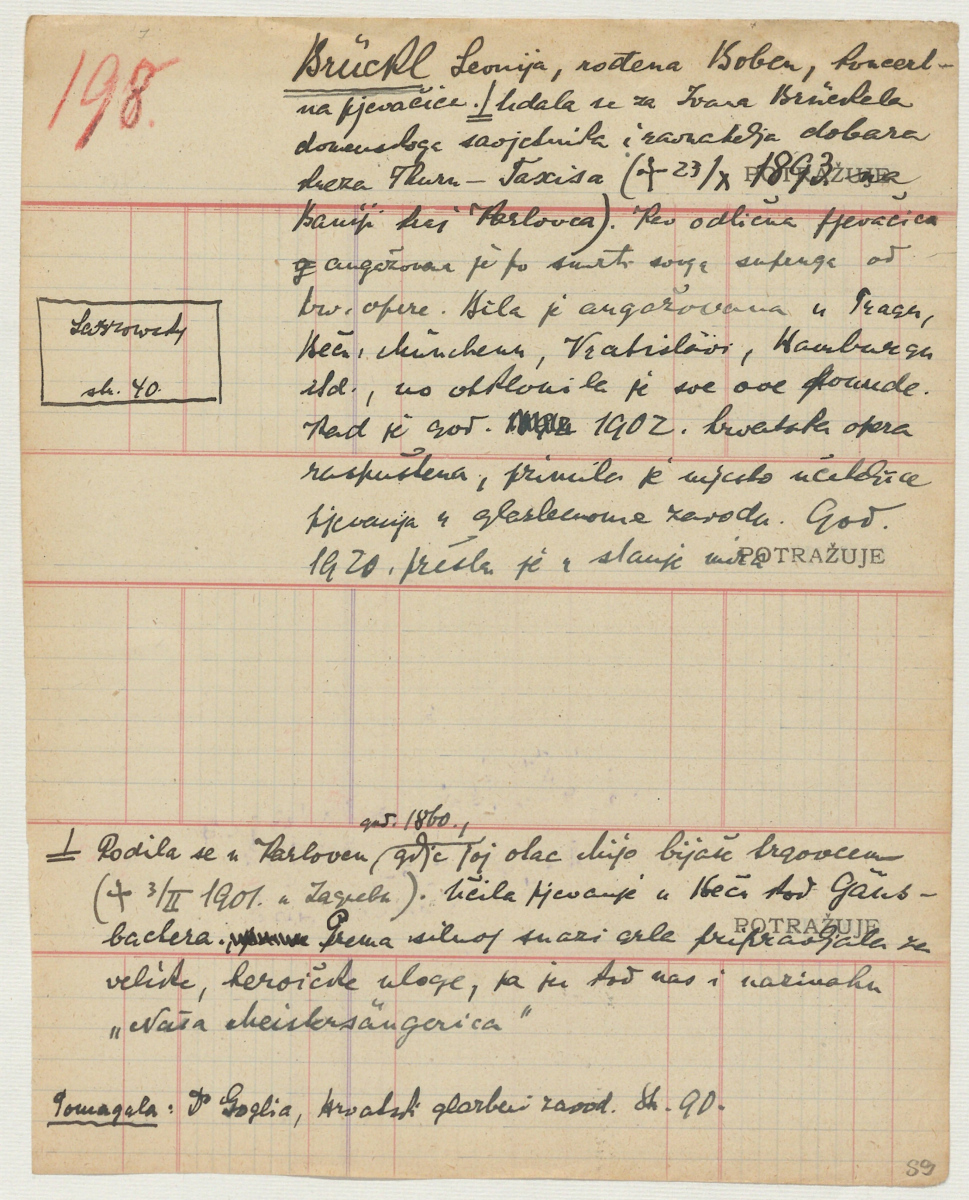 198.
Brückl Leonija, rođena Boben, koncert-
na pjevačica. 1 Udala se za Ivana Brückla
domenskoga savjetnika i ravnatelja dobara
kneza Thurn – Taxisa († 23/X 1893 na
POTRAŽUJE
Baniji kraj Karlovca). Kao odlična pjevačica
angažovana je po smrti svoga supruga od
hrv. opere. Bila je angažovana u Pragu,
Beču, Münchenu, Vratislavi, Hamburgu
itd., no otklonila je sve ove ponude.
Kad je god. 1902. hrvatska opera
raspuštena, primila je mjesto učiteljice
pjevanja u glazbenome zavodu. God.
1920. prešla je u stanje mira
POTRAŽUJE
str. 40
god. 1860.,
1 Rodila se u Karlovcu, gdje joj otac Mijo bijaše trgovcem
(† 3/II 1901. u Zagrebu). Učila pjevanje u Beču kod Gäns-
bachera. Prema silnoj snazi grla pripravljala za
POTRAŽUJE
velike, heroičke uloge, pa ju kod nas i nazivahu
„Naša Meistersängerica"
Pomagala: Dr Goglia, Hrvatski glazbeni zavod. Str. 90.
89